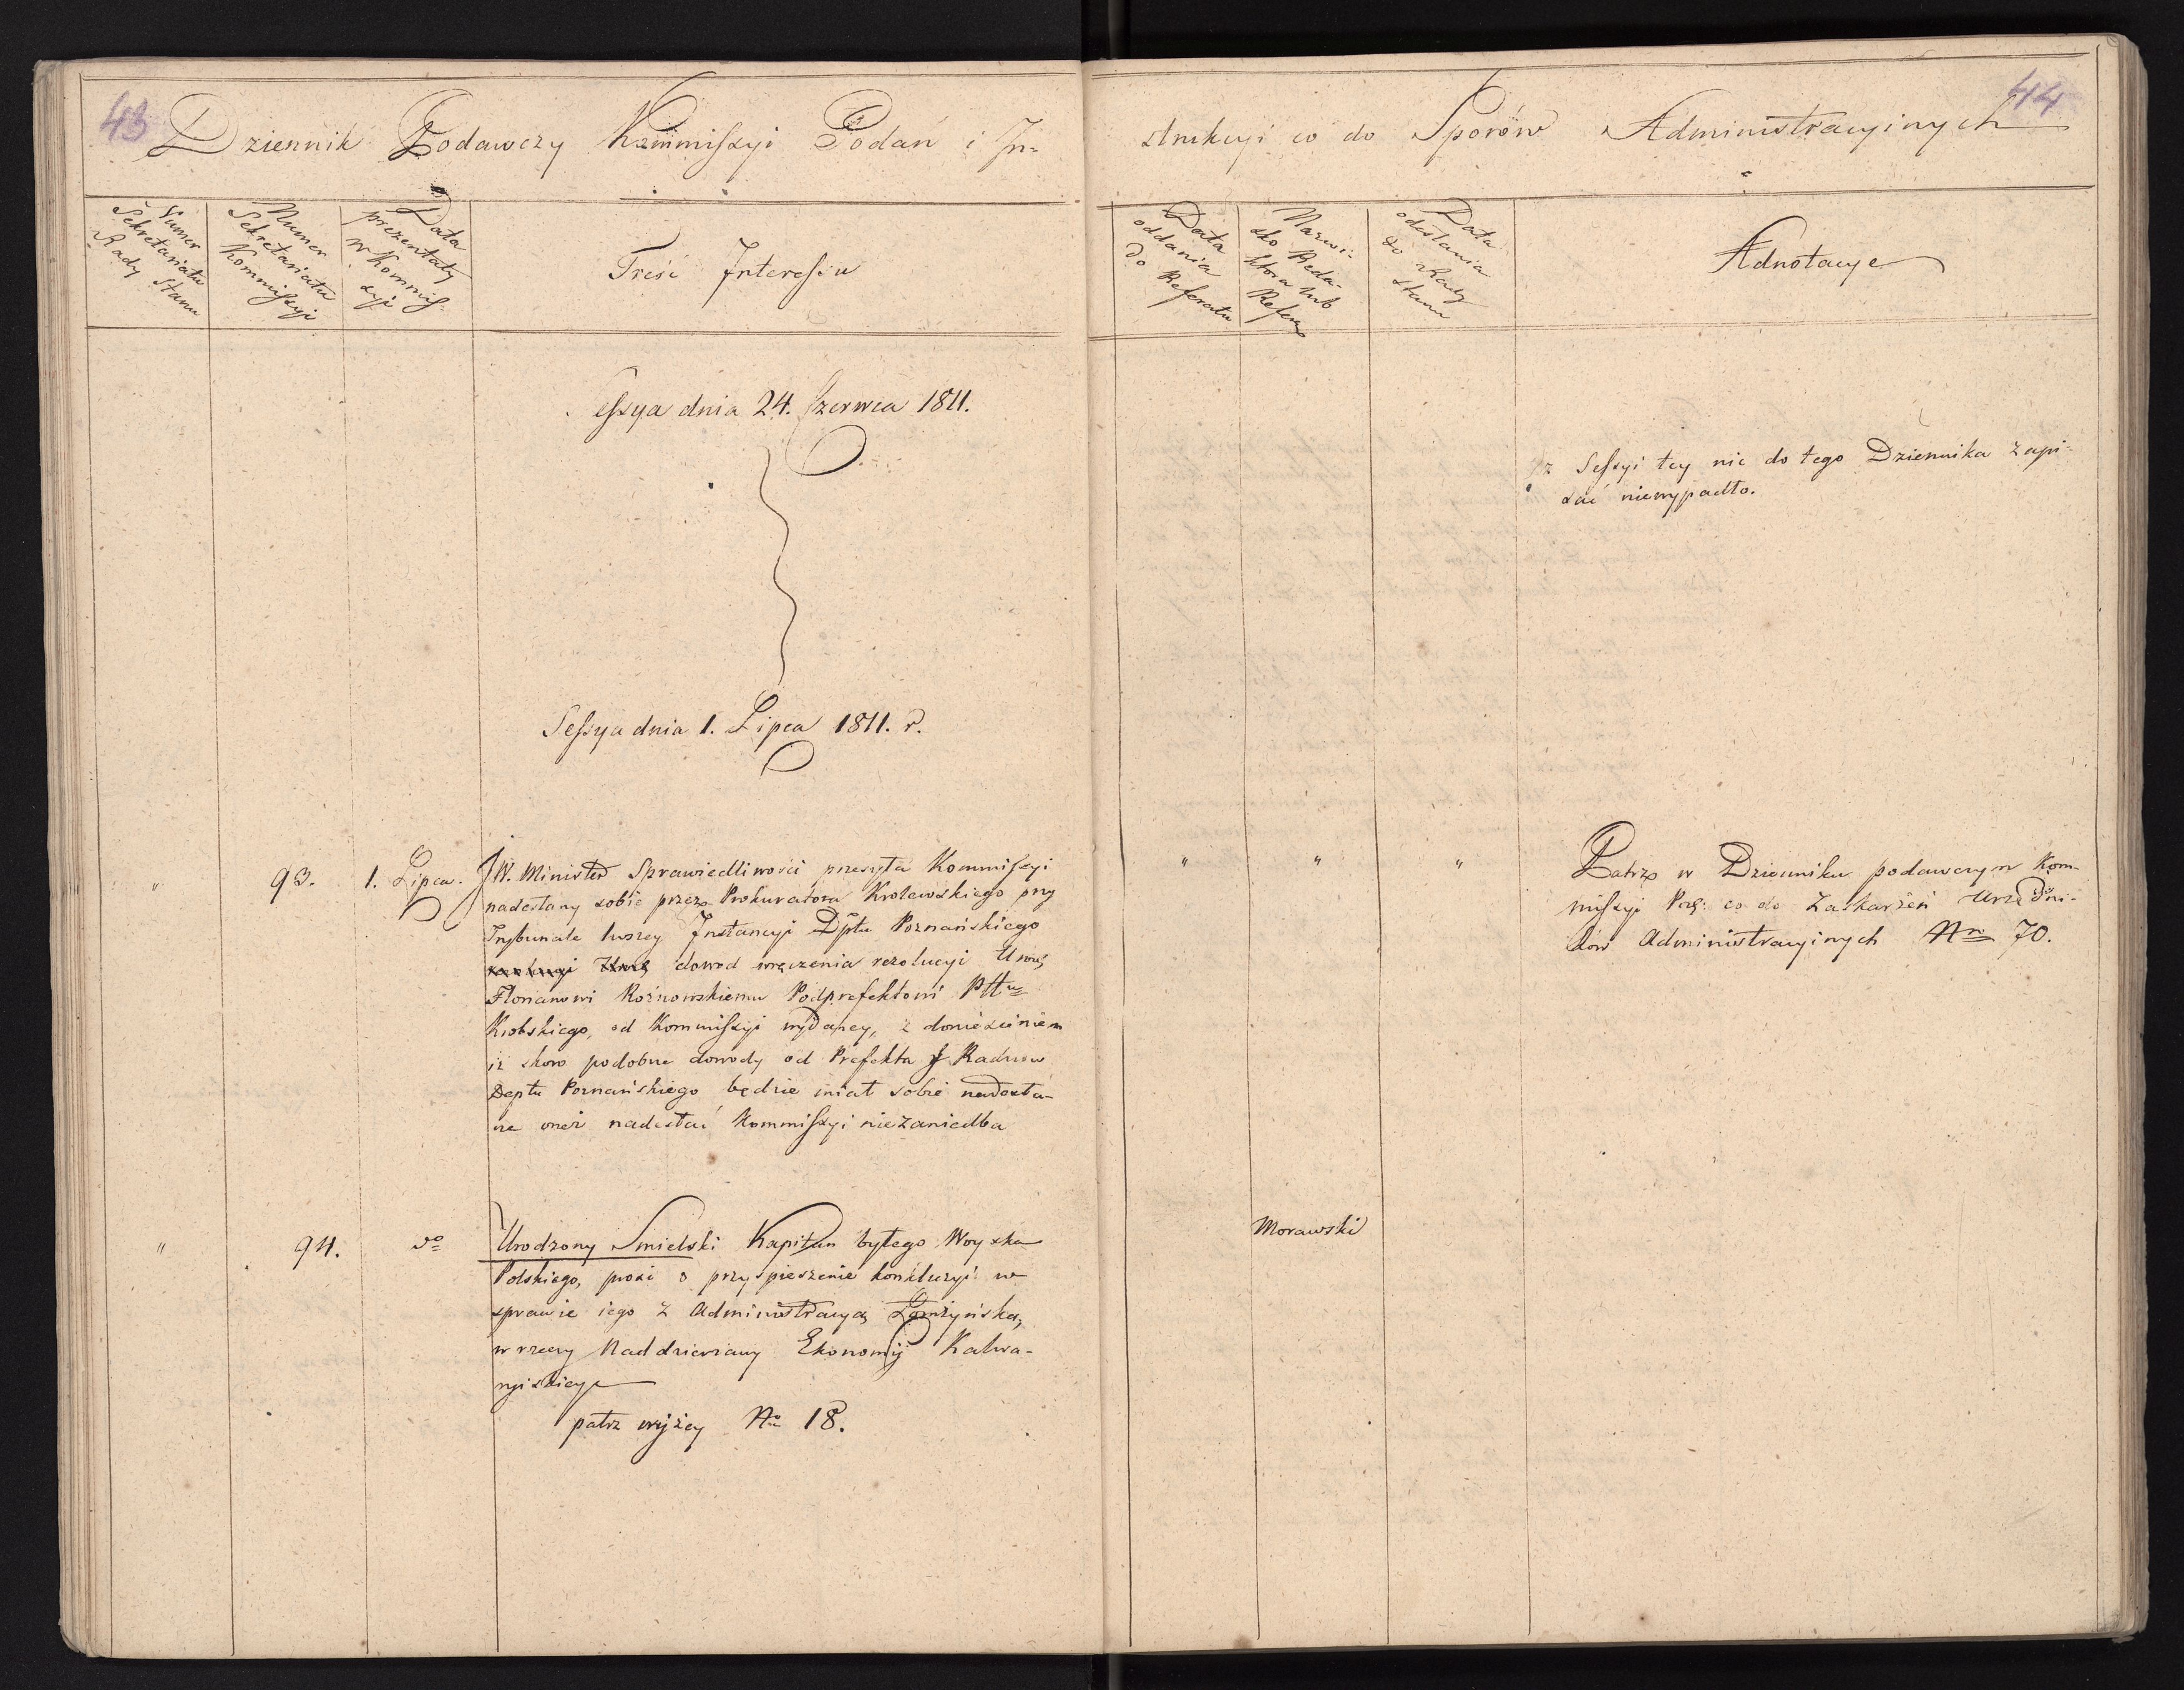 43
44
Dziennik Podawczy Kommissyi Podań i In=
strukcyi co do Sporów Administracyinych
Numer Sekretariatu Rady Stanu
Numer Sekretariatu Kommissyi
Data prezentaty w Kommis=syi
Treść Interessu
Data oddania do Referatu
Nazwi=sko Reda=ktora lub Refer
Data odesłania do Rady Stanu
Adnotacye
Sessya dnia 24. Czerwca 1811.
z Sessyi tey nic do tego Dziennika zapi=
sać niewypadło.
Sessya dnia 1. Lipca 1811. r.
" 93. 1. Lipca. JW. Minister Sprawiedliwości przesyła Kommissyi
nadesłany sobie przez Prokuratora Krolewskiego przy
Trybunale Iwszey Instancyi Dptu Poznańskiego
dowod wręczenia rezolucyi Urou
Floryanowi Rożnowskiemu Podprefektowi Pttu
Krobskiego, od Kommissyi wydaney, z doniesieniem
iż skoro podobne dowody od Prefekta y Radców
Deptu Poznańskiego będzie miał sobie nadesła=
ne oneż nadesłać Kommissyi niezaniedba
" " " Patrz w Dzienniku podawczym Kom=
missyi co do Zaskarżeń Urzędni=
ków Administracyinych Nro 70.
" 94. do Urodzony Smielski Kapitan byłego Woyska
Polskiego, prosi o przyspieszenie konkluzyi w
sprawie iego z Administracyą Łomżyńską,
w rzeczy Naddzierżawy Ekonomij Kalwa=
ryiskiey
patrz wyżey No 18.
Morawski